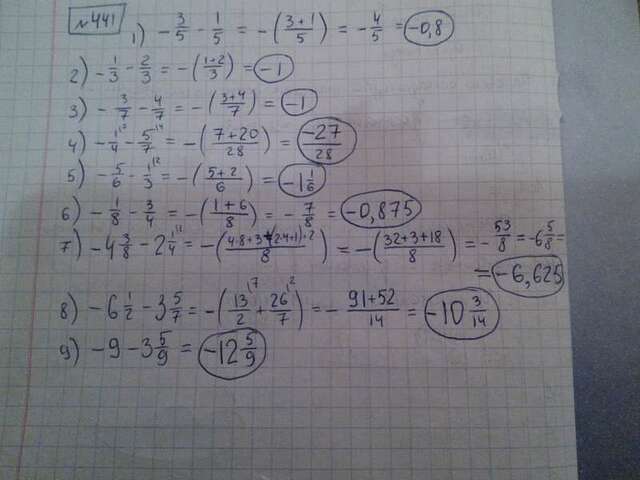 №441
1) -3/5 - 1/5 = -(3+1/5) = -4/5 = -0,8
2) -1/3 - 2/3 = -(1+2/3) = -1
3) -3/7 - 4/7 = -(3+4/7) = -1
4) -1/4 - 5/7 = -(7+20/28) = -27/28
5) -5/6 - 1/3 = -(5+2/6) = -1 1/6
6) -1/8 - 3/4 = -(1+6/8) = -7/8 = -0,875
7) -4 3/8 - 2 1/4 = -(4·8+3+(2·4+1)·2/8) = -(32+3+18/8) = -53/8 = -6 5/8 =
= -6,625
8) -6 1/2 - 3 5/7 = -(13/2 + 26/7) = -91+52/14 = -10 3/14
9) -9 - 3 5/9 = -12 5/9